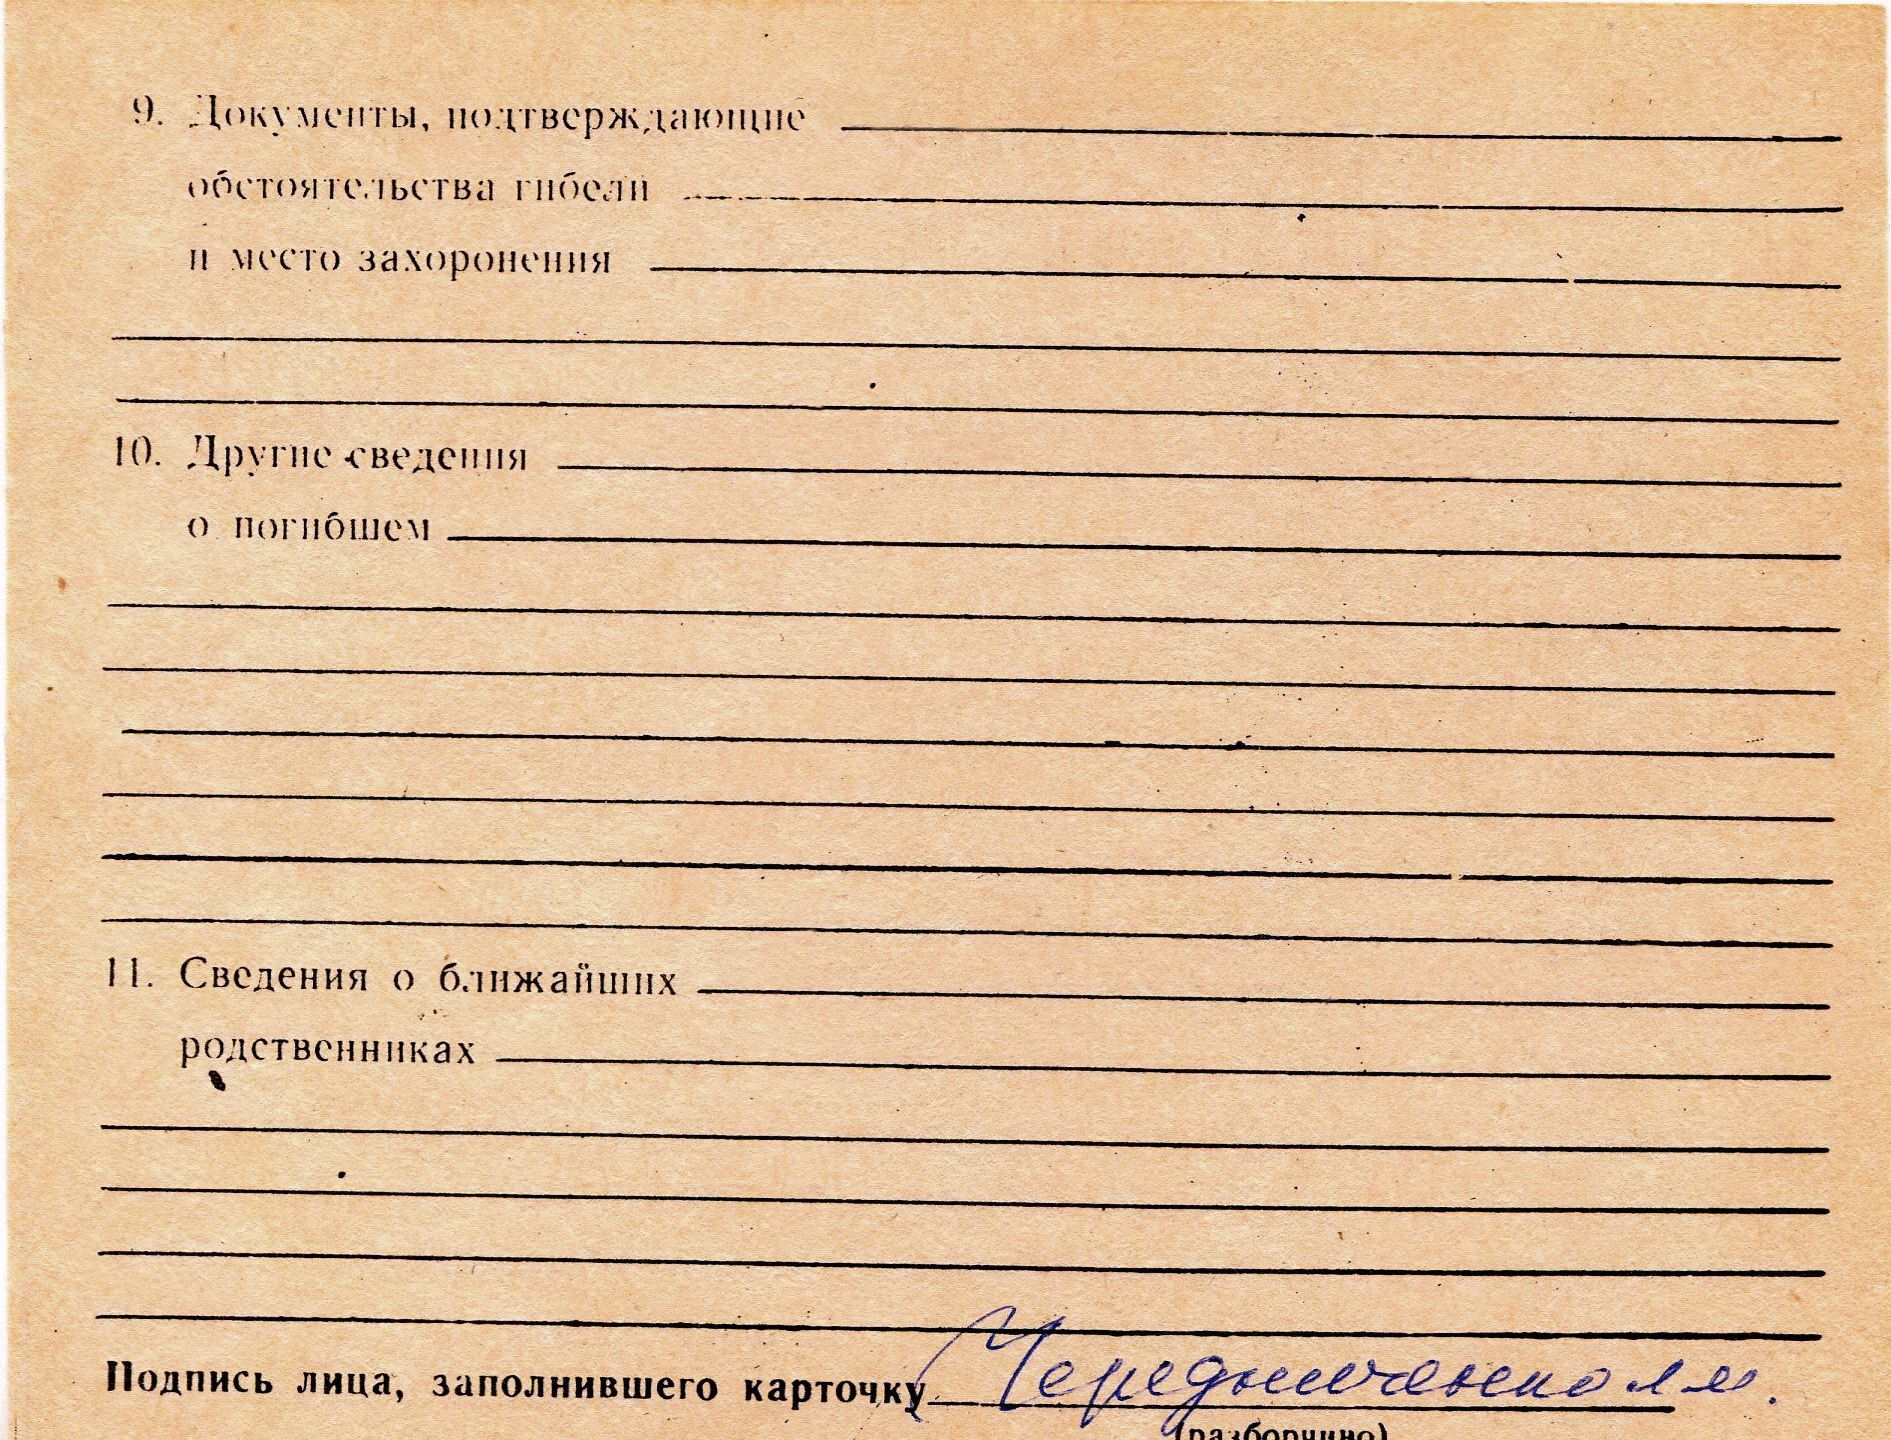 9. Документы, подтверждающие
обстоятельства гибели
и место захоронения
10. Другие сведения
о погибшем
11. Сведения о ближайших
родственниках
Подпись лица, заполнившего карточку
(разборчиво)